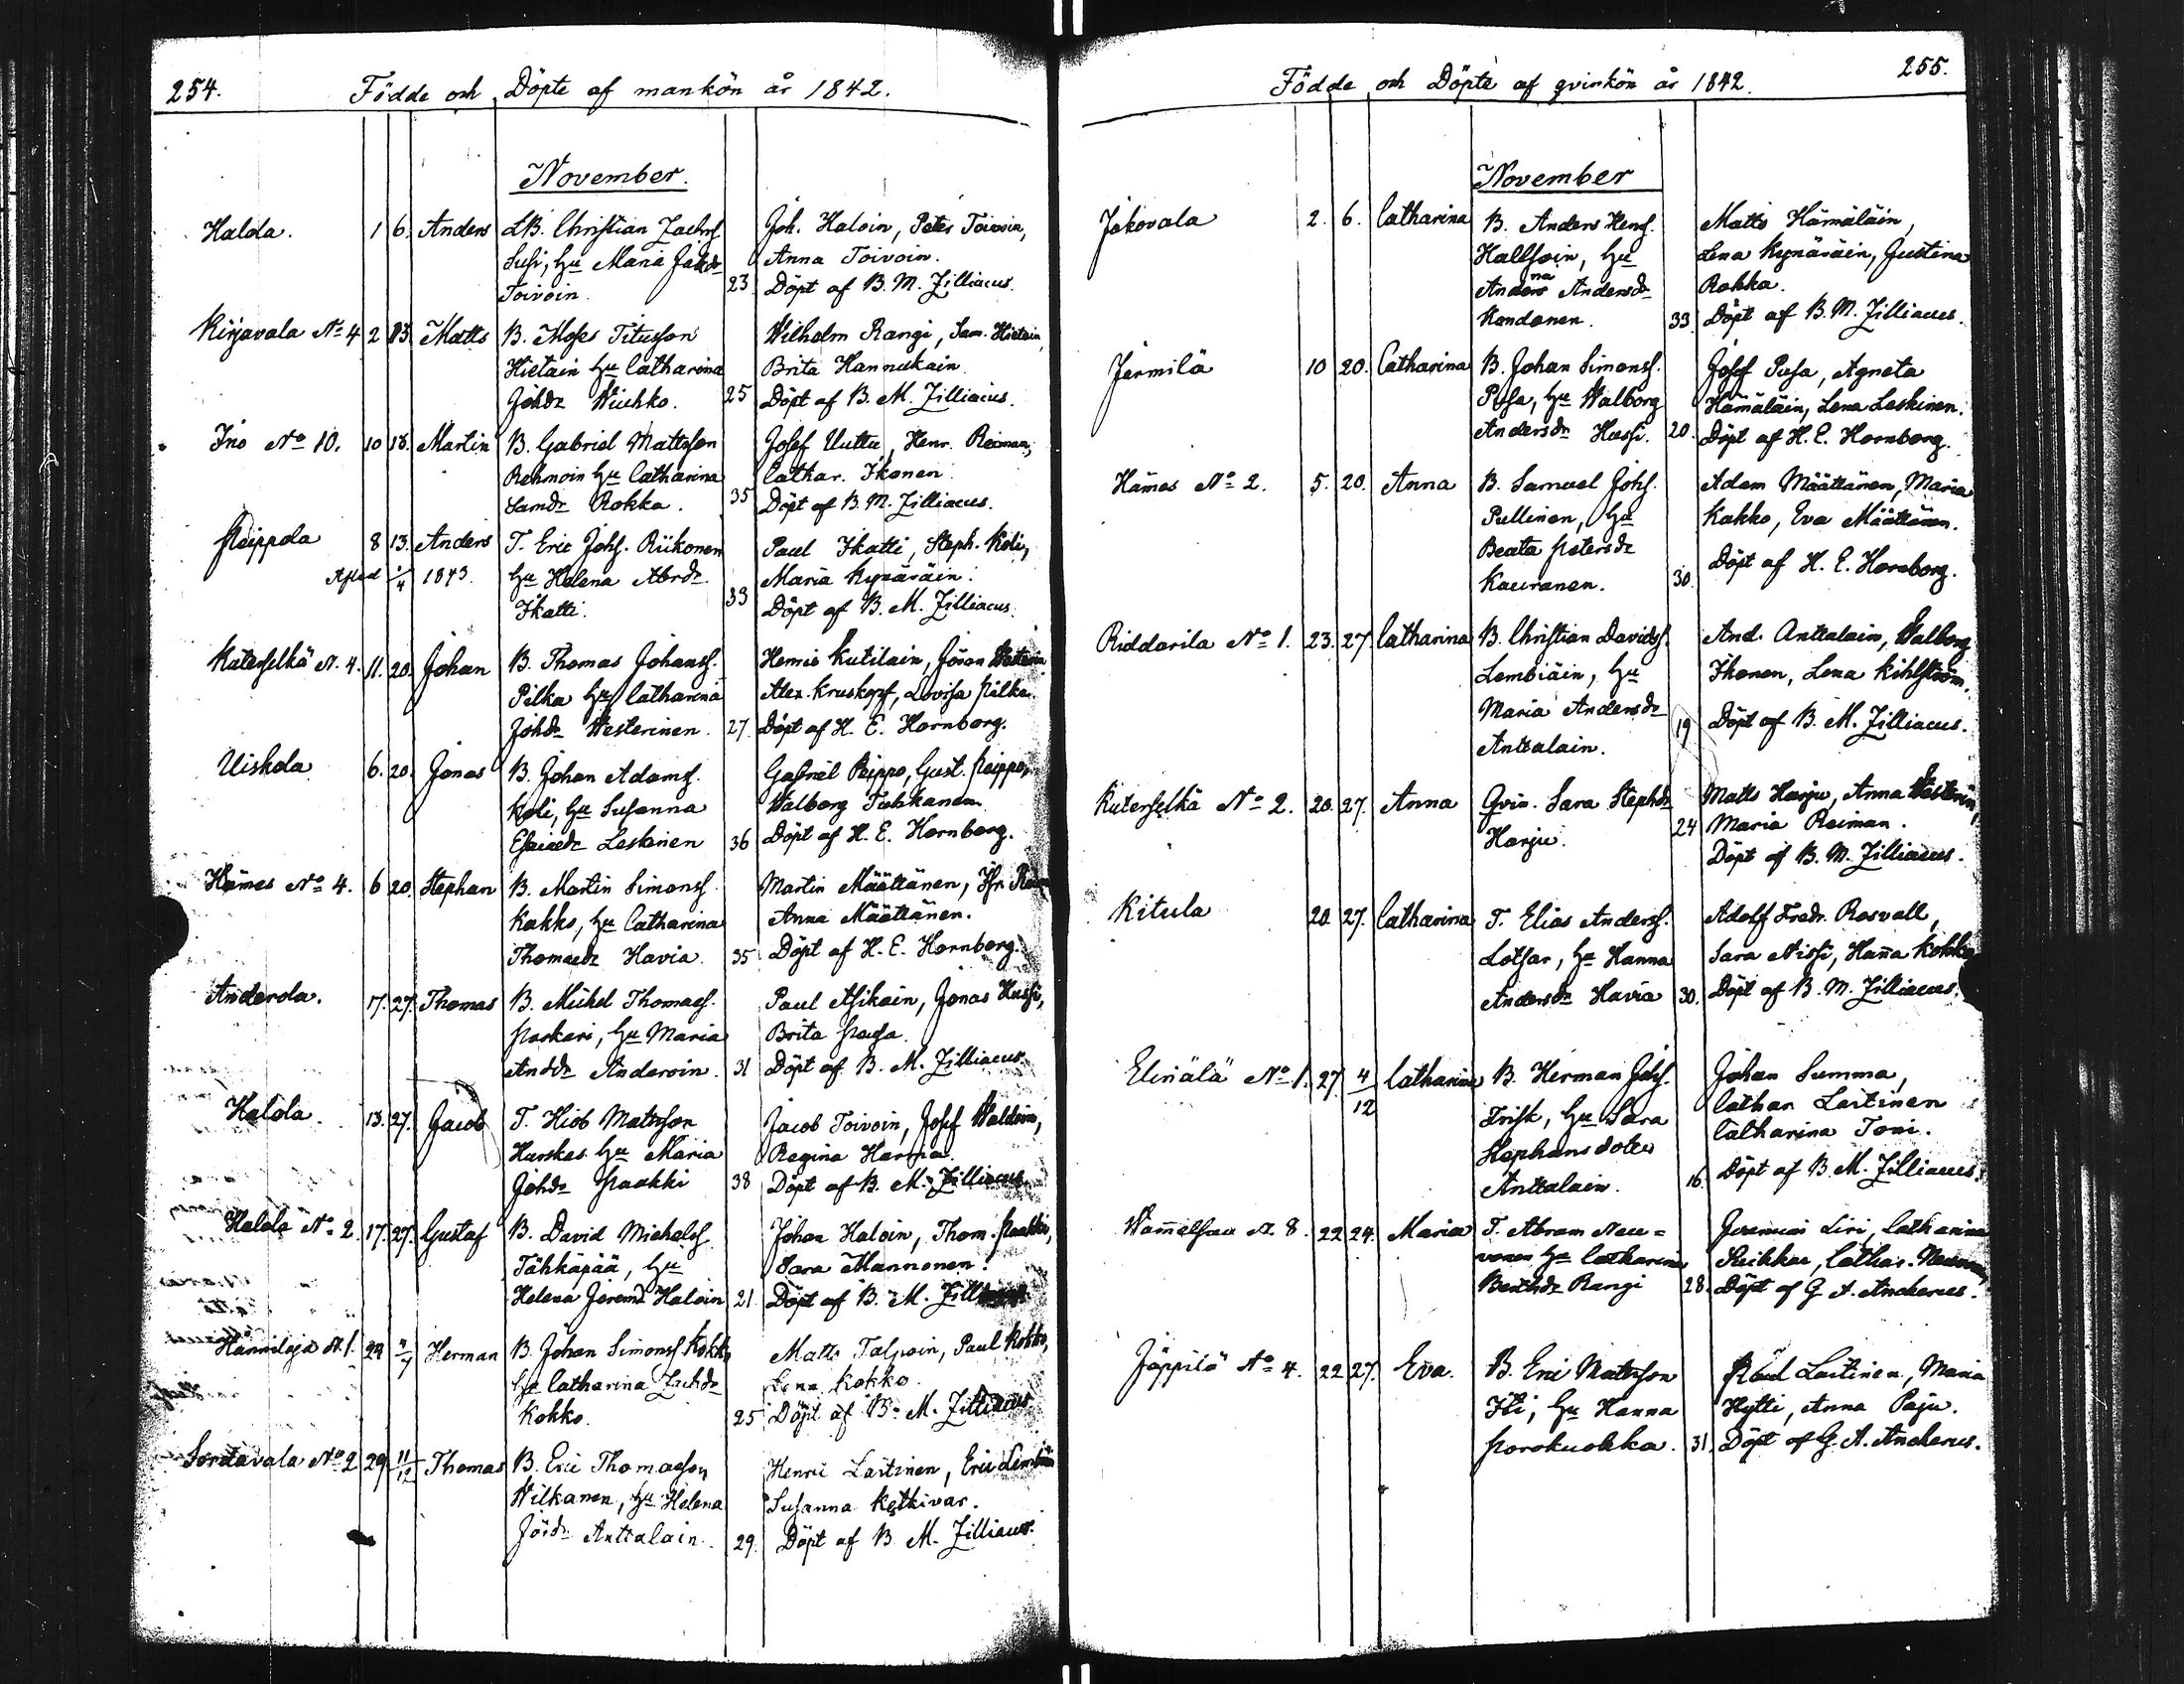 254. Födde och Döpte af mankön år 1842.
November.
Halola. 1 6. Anders LB. Christian Zachrs. Joh. Haloin, Peter Toivoin,
Susi, Hu Maria Jakdr Anna Toivoin.
Toivoin. 23. Döpt af B. M. Zilliacus.
Kirjavala No 4 2 13. Matts B. Moses Titusson Wilhelm Rangi, Sam. Hietain,
Hietain Hu Catharina Brita Hannukain
Johdr Wiehko. 25 Döpt af B. M. Zilliacus.
Ino No 10. 10 13. Martin B. Gabriel Mattsson Josef Uuttu, Henr. Reiman,
Rehmoin Hu Catharina Cathar. Ikonen
Samdr Rokka. 35 Döpt af B. M. Zilliacus.
Peippola 8 13. Anders T. Eric Johs. Riikonen Paul Ikatti, Steph. Koli,
Afled 1/4 1843. Hu Helena Abrdr Maria Kynäräin.
Ikatti. 33 Döpt af B. M. Zilliacus.
Kuterselkä N. 4. 11. 20. Johan B. Thomas Johanss. Henric Kutilain, Jöran Westerin
Pilka Hu Catharina Alex. Kruskopf, Lovisa Pilka.
Johdr Westerinen. 27. Döpt af H. E. Hornborg.
Uiskola 6. 20. Jonas B. Johan Adams. Gabriel Peippo, Gust. Peippo,
Koli, Hu Susanna Walborg Tuhkanen
Esaiedr Leskinen 36 Döpt af H. E. Hornborg.
Hämes No 4. 6 20. Stephan B. Martin Simonss. Martin Määttänen,
Kakko, Hu Catharina Anna Määttänen.
Thomaedr Havia. 35 Döpt af H. E. Hornborg.
Anderola. 17. 27. Thomas B. Michel Thomaes. Paul Asikain, Jonas Hussi,
Parkari, Hu Maria Brita Pusa.
Anddr Anderoin. 31 Döpt af B. M. Zilliacus.
Halola. 13. 27. Jacob T. Hiob Matsson Jacob Toivoin, Josef
Hurskas Hu Maria Regina Harma.
Johdr Paakki 38 Döpt af B. M. Zilliacus.
Halola No 2. 17. 27. Gustaf B. David Michels. Johan Haloin, Thom. Paakki,
Tähkäpää, Hu Sara Mannonen.
Helena Jeremd Haloin 21. Döpt af B. M. Zilliacus
Hannilaja N. 1. 29 Herman B. Johan Simonss Kokko, Matts Talpoin, Paul Kokko,
Hu Catharina Zachdr Lena Kokko.
Kokko. 25 Döpt af B. M. Zilliacus
Sordavala No 2 29 11/12 Thomas B. Eric Thomaeson Henric Laitinen, Eric Lembiäin
Wilkanen, Hu Helena Susanna Ketkivar.
Jördr Anttalain. 29. Döpt af B. M. Zilliacus.
Födde och Döpte af qvinkön år 1842. 255.
November
Jäkovala 2. 6. Catharina B. Anders Hens. Matts Hämäläin,
Hallsoin, Hu Lena Kynäräin, Justina
na
Anders Andersdr Rokka.
Kondonen. 33. Döpt af B. M. Zilliacus.
Järmilä 10 20. Catharina B. Johan Simonss. Josef Pusa, Agneta
Pusa, Hu Walborg Hämäläin, Lena Leskinen.
Andersdr Hussi. 20. Döpt af H. E. Hornborg.
Hämes No 2. 5. 20. Anna B. Samuel Johs. Adam Määttänen, Maria
Pullinen, Hu Kakko, Eva Määttänen.
Beata Petersdr Döpt af H. E. Hornborg.
Kauranen. 30.
Riddarila No 1. 23. 27. Catharina B. Christian Davids. And. Anttalain, Walborg
Lembiäin, Hu Ikonen, Lena Kihlström.
Maria Andersdr 19 Döpt af B. M. Zilliacus.
Anttalain.
Kuterselkä No 2. 20. 27. Anna Qvin. Sara Stephdr Matts Harju, Anna Westerin,
Harju. 24 Maria Reiman.
Döpt af B. M. Zilliacus.
Kitula 20. 27. Catharina T. Elias Anderss. Adolf Fredr. Rosvall,
Lotsar, Hu Hanna Sara Nissi, Hanna Kokko
Andersdr Havia 30. Döpt af B. M. Zilliacus.
Elinälä No 1. 27 4/12 Catharina B. Herman Johs. Johan Summa,
Frisk, Hu Sara Cathar Laitinen
Stephansdoter Catharina Toni.
Anttalain. 16. Döpt af B. M. Zilliacus.
Wammelsuu N. 8. 22 24. Maria T. Abram Neu= Liri, Catharina
vonen Hu Catharina Cathar. Neuvonen,
Rangi 28. Döpt af G. A. Ancherus.
Jäppilä No 4. 22 27. Eva. B. Eric Mattsson Paul Laitinen, Maria
Iti, Hu Hanna Hytti, Anna Paju.
Porokuokka. 31. Döpt af G. A. Ancherus.